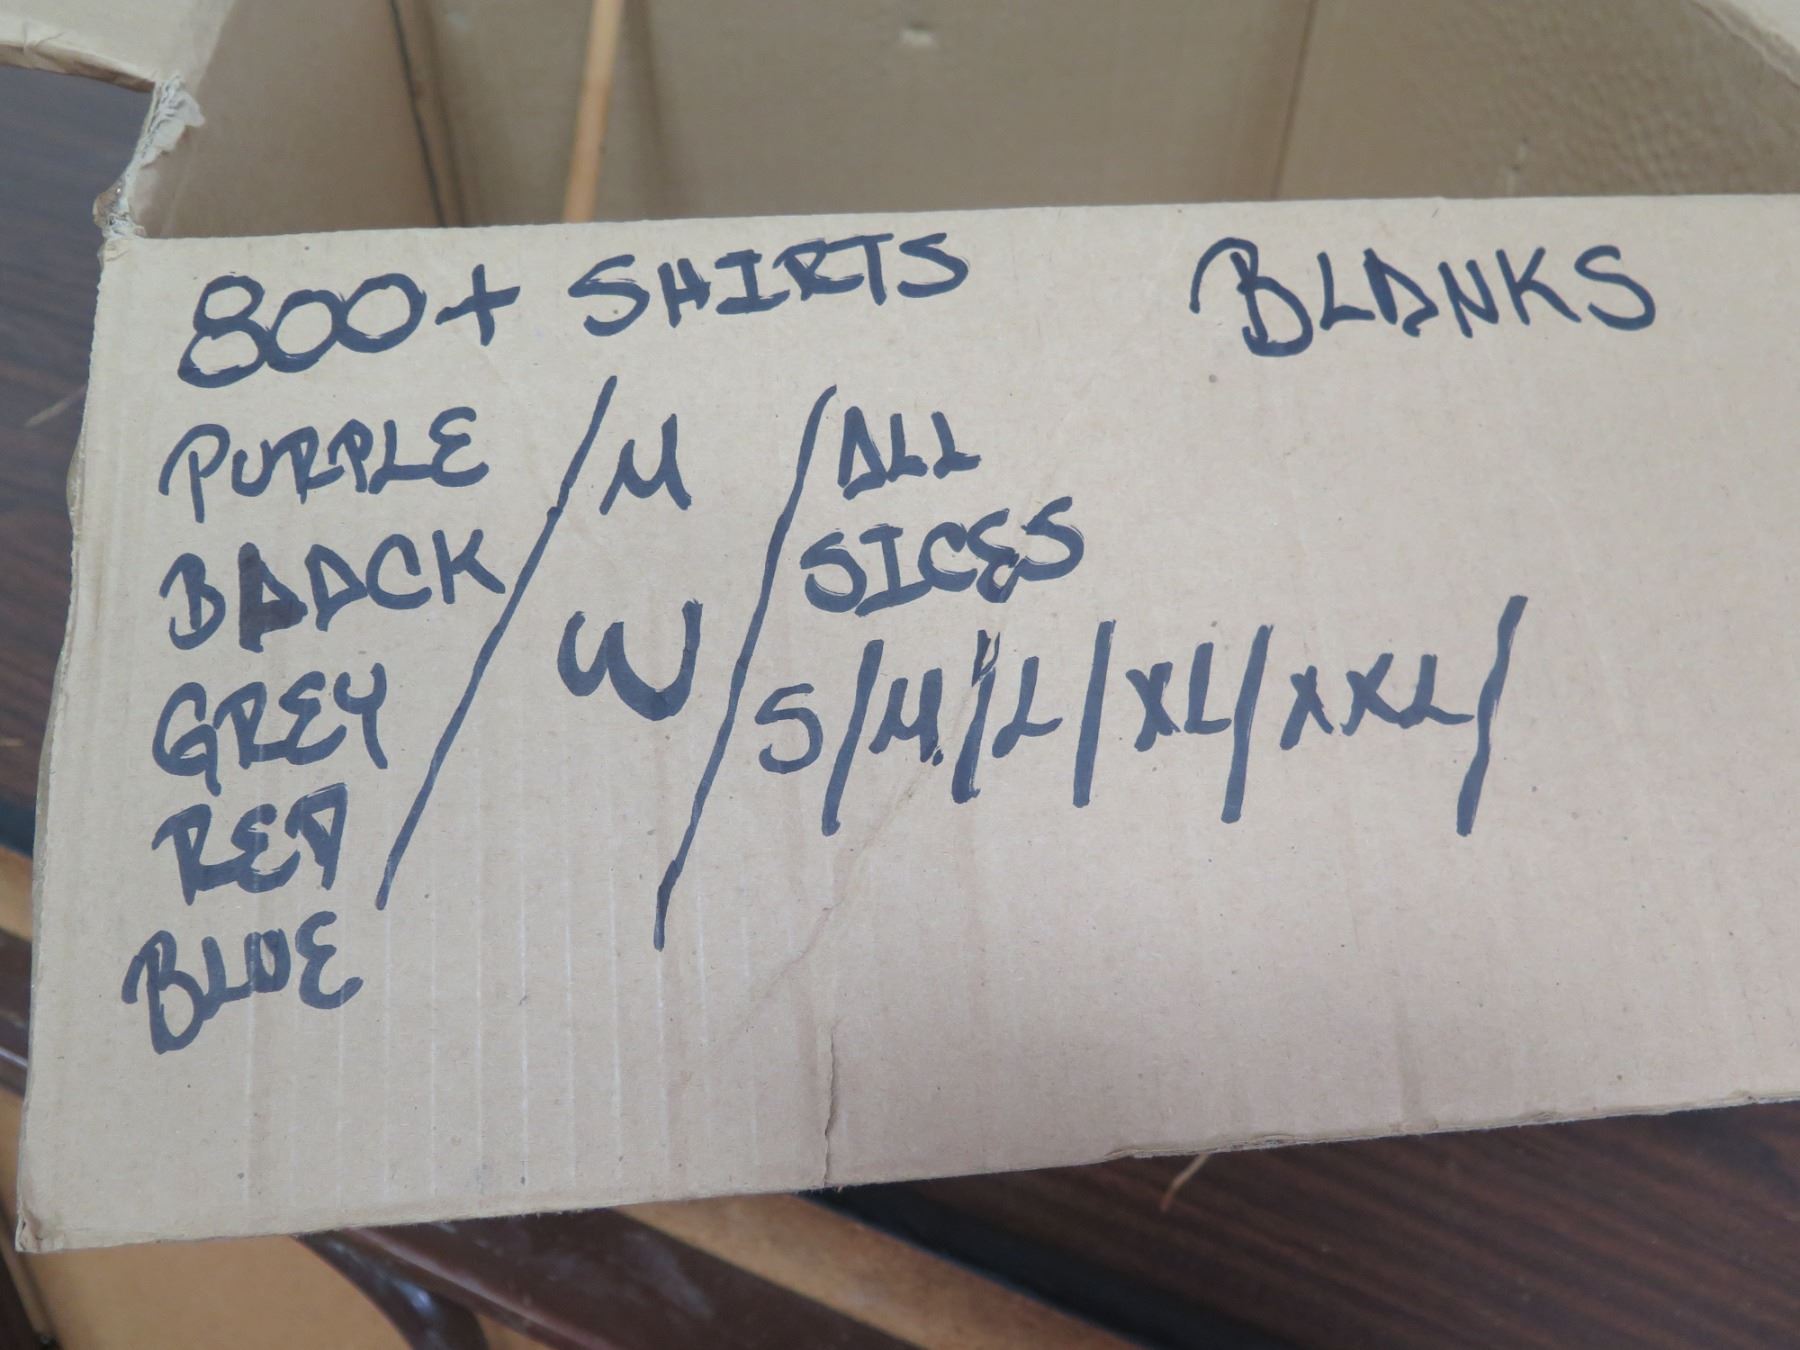 800+ SHIRTS BLANKS
PURPLE / M / ALL
BAACK SICES
GREY W S/M/L/XL/XXL/
RED
BLUE